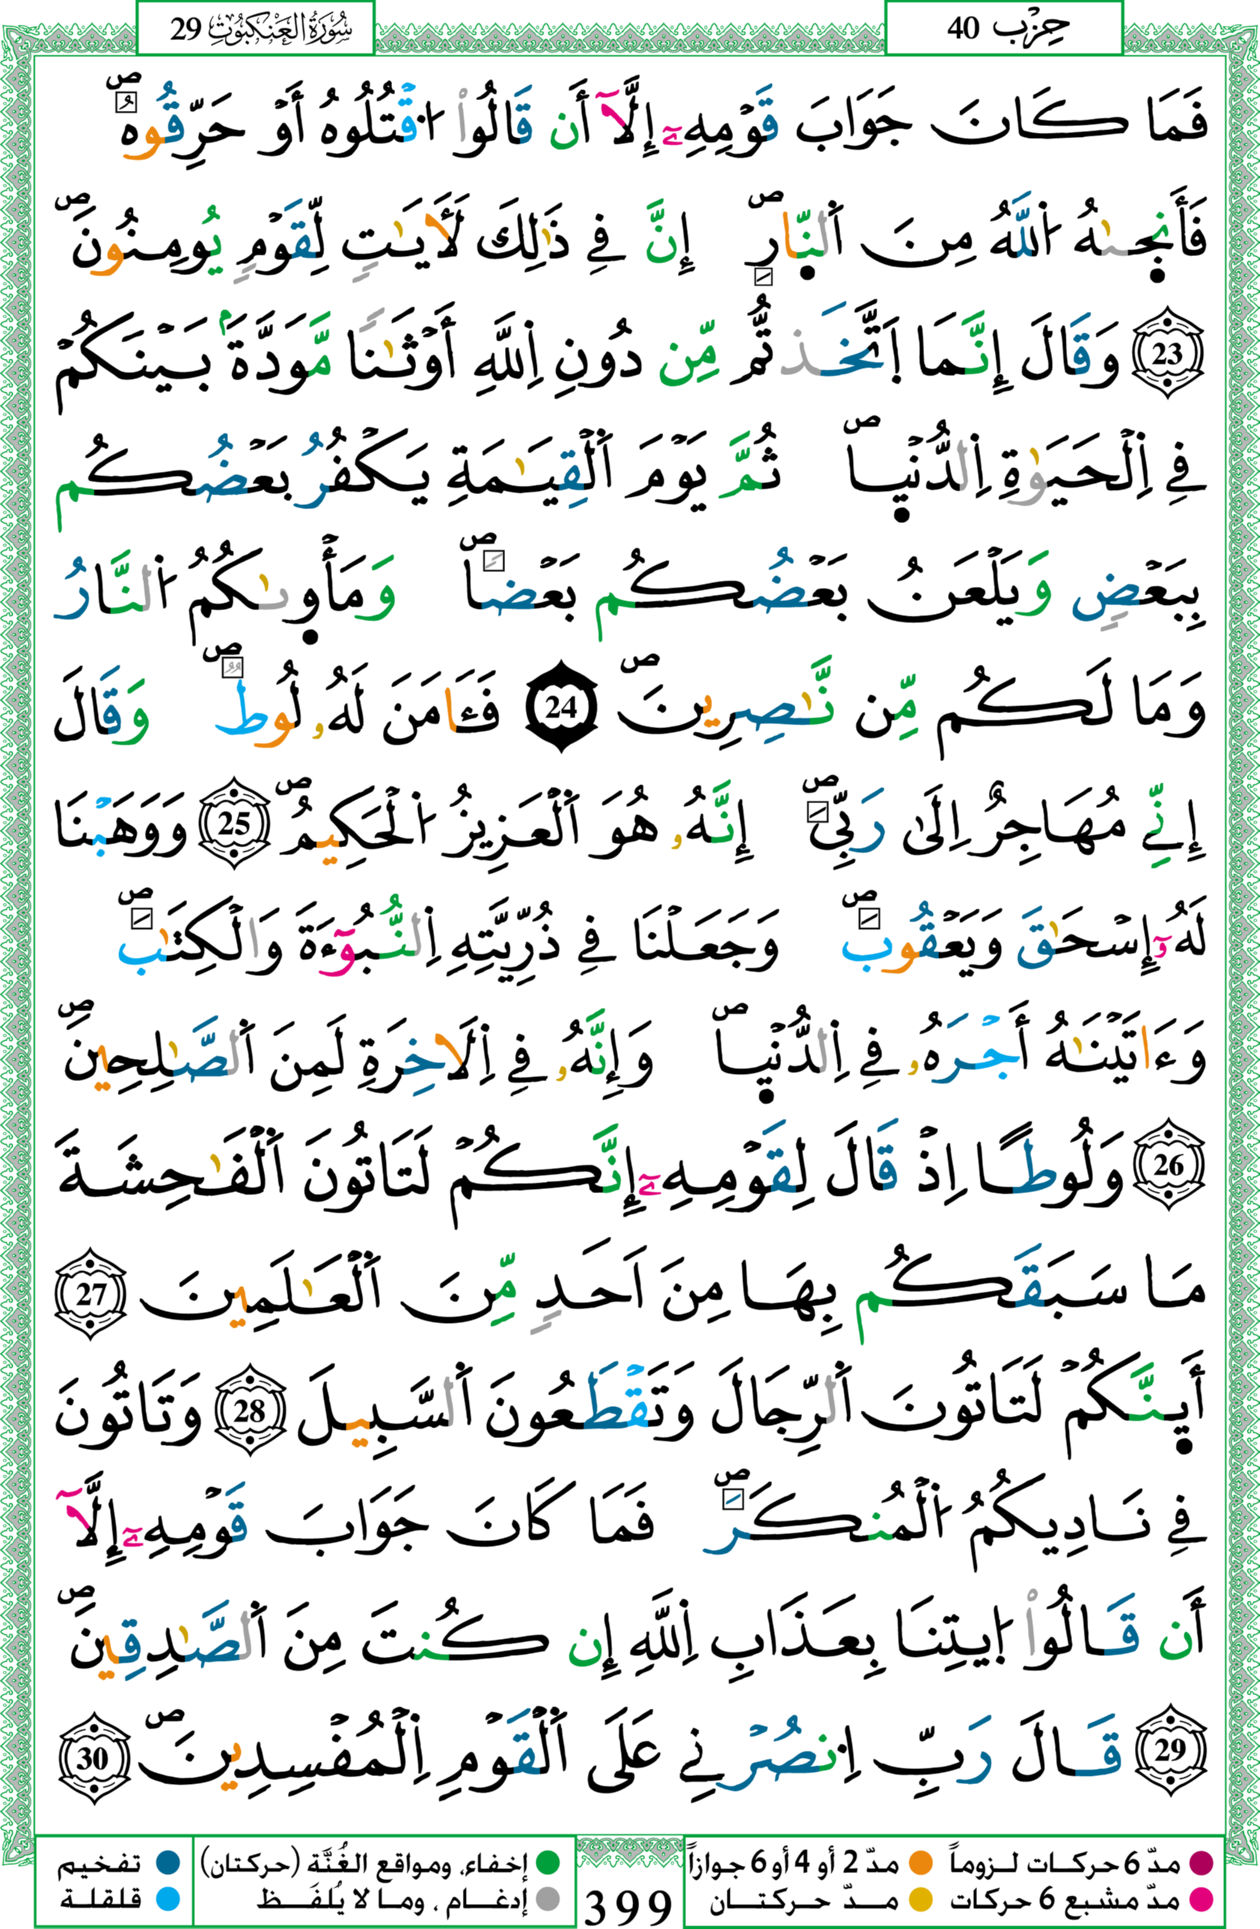 سُورَةُ العَنكَبُوتِ 29
حِزْب 40
فَمَا كَانَ جَوَابَ قَوْمِهِۦٓ إِلَّآ أَن قَالُوا۟ اُ۟قْتُلُوهُ أَوْ حَرِّقُوهُ ۖ
فَأَنج۪يٰهُ اُ۬للَّهُ مِنَ اَ۬لنّ۪ارِ ۖ إِنَّ فِے ذَٰلِكَ لَأٓيَٰتٍ لِّقَوْمٍ يُومِنُونَ ۖ
23 وَقَالَ إِنَّمَا اَ۪تَّخَذتُّم مِّن دُونِ اِ۬للَّهِ أَوْثَٰنًا مَّوَدَّةَۢ بَيْنَكُمْ
فِے اِ۬لْحَيَوٰةِ اِ۬لدُّنْي۪ا ۖ ثُمَّ يَوْمَ اَ۬لْقِيَٰمَةِ يَكْفُرُ بَعْضُكُم
بِبَعْضٍ وَيَلْعَنُ بَعْضُكُم بَعْضاً ۖ وَمَأْو۪يٰكُمُ اُ۬لنَّارُ
وَمَا لَكُم مِّن نَّٰصِرِينَ ۖ 24 فَـَٔامَنَ لَهُۥ لُوطٌ ۖ وَقَالَ
إِنِّے مُهَاجِرٌ اِلَىٰ رَبِّيَ ۖ إِنَّهُۥ هُوَ اَ۬لْعَزِيزُ اُ۬لْحَكِيمُ ۖ 25 وَوَهَبْنَا
لَهُۥٓ إِسْحَٰقَ وَيَعْقُوبَ ۖ وَجَعَلْنَا فِے ذُرِّيَّتِهِ اِ۬لنُّبُوٓءَةَ وَالْكِتَٰبَ ۖ
وَءَاتَيْنَٰهُ أَجْرَهُۥ فِے اِ۬لدُّنْي۪ا ۖ وَإِنَّهُۥ فِے اِ۬لَاخِرَةِ لَمِنَ اَ۬لصَّٰلِحِينَ ۖ
26 وَلُوطًا اِذْ قَالَ لِقَوْمِهِۦٓ إِنَّكُمْ لَتَاتُونَ اَ۬لْفَٰحِشَةَ
مَا سَبَقَكُم بِهَا مِنَ اَحَدٍ مِّنَ اَ۬لْعَٰلَمِينَ 27
أَي۪نَّكُمْ لَتَاتُونَ اَ۬لرِّجَالَ وَتَقْطَعُونَ اَ۬لسَّبِيلَ 28 وَتَاتُونَ
فِے نَادِيكُمُ اُ۬لْمُنكَرَ ۖ فَمَا كَانَ جَوَابَ قَوْمِهِۦٓ إِلَّآ
أَن قَالُوا۟ اُ۪يتِنَا بِعَذَابِ اِ۬للَّهِ إِن كُنتَ مِنَ اَ۬لصَّٰدِقِينَ ۖ
29 قَالَ رَبِّ اِ۟نصُرْنِے عَلَى اَ۬لْقَوْمِ اِ۬لْمُفْسِدِينَ ۖ 30
مدّ 6 حركات لـزوماً
مدّ 2 أو 4 أو 6 جوازاً
إخفاء، ومواقع الغُنَّة (حركتان)
تفخيم
مدّ مشبع 6 حركات
مـدّ حـركتـان
إدغـام ، ومـا لا يُلفَـظ
قلقلة
399